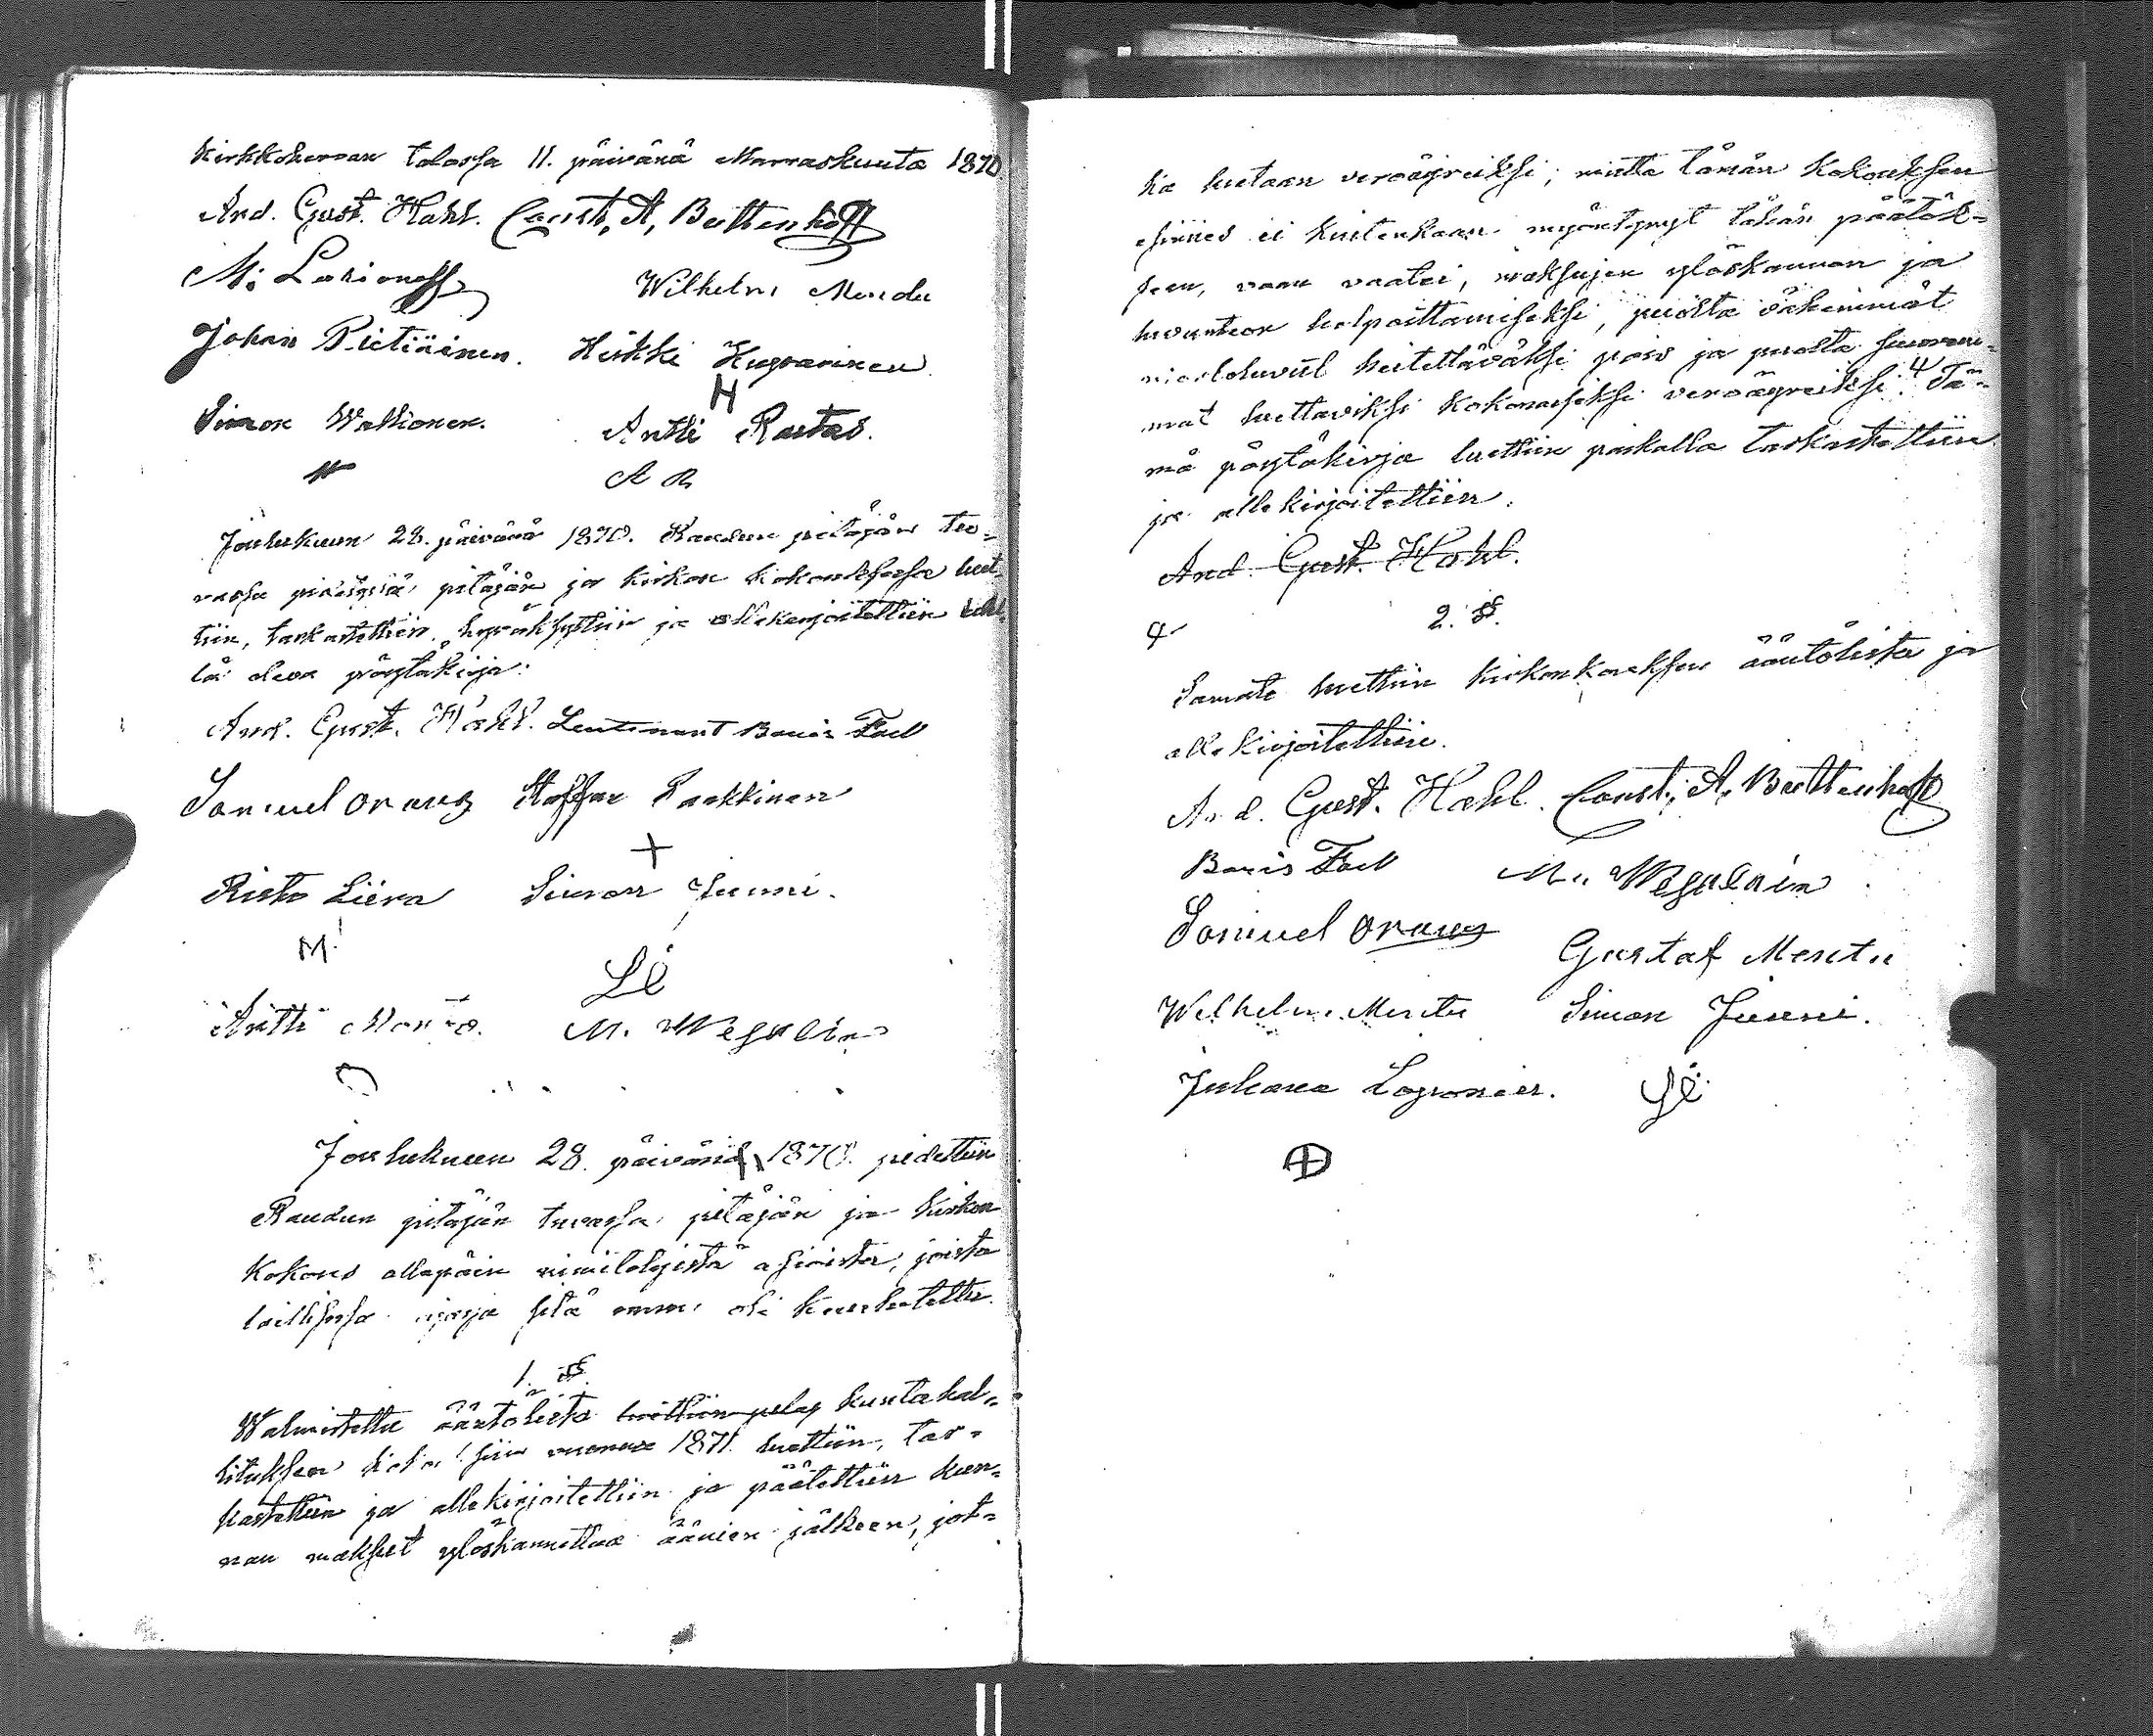 Kirkkoherran talossa 11. päivänä Marraskuuta 1870
And. Gust. Hahl. Const. A, Buttenhoff
M. Larionoff
Wilhelm Mentu
Johan Pietiäinen. Heikki Kuparinen
H
Simon Walkonen. Antti Rastas.
A R
Joulukuun 28. päivänä 1870. Raudun pitäjän tu-
vassa pidetyssä pitäjän ja kirkon kokouksessa luet-
tiin, tarkastettiin hyväksyttiin ja allekirjoitettiin
lä oleva pöytäkirja.
And. Gust. Hahl. Leutenant Boris Fock
Samuel orava Staffan Paakkinen
Risto Liira Simon Junni.
M
Antti M. Wegelin
Joulukuun 28. päivänä 1870. pidettiin
Raudun pitäjän tuvassa pitäjän ja kirkon
Kokous allapäin nimitetyistä asioista, joista
laillisessa ajassa sitä ennen oli kuulutettu.
1. §.
Walmistettu ääntölista luettiin kuntahal-
lituksen vuonna 1871. luettiin, tar-
kastettiin ja allekirjoitettiin ja päätettiin kun-
nan maksut ylöskannettaa äänien jälkeen, jot-
ka luetaan veroäyreiksi; mutta tämän Kokouksen
esimies ei kuitenkaan myöntynyt tähän päätök-
seen, vaan vaatei, maksujen ylöskannon ja
luvunteon helpoittamiseksi, puolta vähemmät
heitettäväksi pois ja puolta suurem-
mat luettaviksi kokonaiseksi veroäyreiksi. Tä-
mä pöytäkirja luettiin paikalla tarkastettiin
ja allekirjoitettiin.
And. Gust. Hahl.
2. §.
Samate luettiin kirkonkokuksen ääntölista ja
allekirjoitettiin.
And. Gust. Hahl. Const. A. Buttenhoff
Boris Fock M. Wegelin
Samuel orava
Gustaf Mentu
Wilhelm Mentu Simon Junni.
Juhana Loponen.